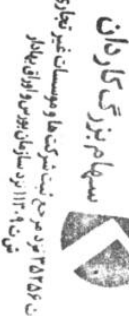 سهام بزرگ کاردان
ن ۳۵۳۵۶ نزد مرجع ثبت شرکت ها و موسسات غیر تجاری
ش ث ۱۱۳۰۹ نزد سازمان بورس و اوراق بهادار